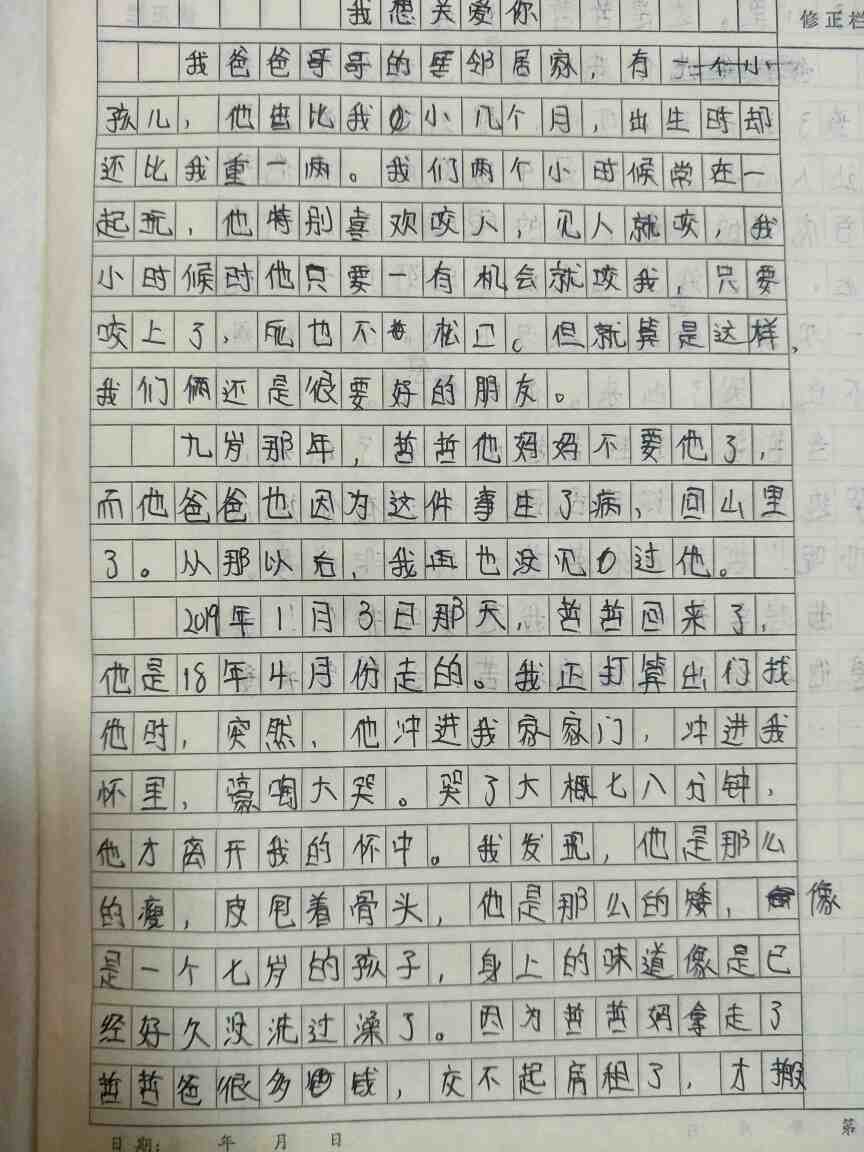 我想关爱你
修正栏
我爸爸哥哥的邻居家，有一个小
孩儿，他比我小几个月，出生时却
还比我重一两。我们两个小时候常在一
起玩，他特别喜欢咬人，见人就咬，我
小时候时他只要一有机会就咬我，只要
咬上了，死也不松口。但就算是这样，
我们俩还是很要好的朋友。
九岁那年，哲哲他妈妈不要他了，
而他爸爸也因为这件事生了病，回山里
了。从那以后，我再也没见过他。
2019年1月3日那天，哲哲回来了，
他是18年4月份走的。我正打算出们找
他时，突然，他冲进我家家门，冲进我
怀里，嚎啕大哭。哭了大概七八分钟，
他才离开我的怀中。我发现，他是那么
的瘦，皮包着骨头，他是那么的矮，像
是一个七岁的孩子，身上的味道像是已
经好久没洗过澡了。因为哲哲妈拿走了
哲哲爸很多钱，交不起房租了，才搬
日期： 年 月 日
第